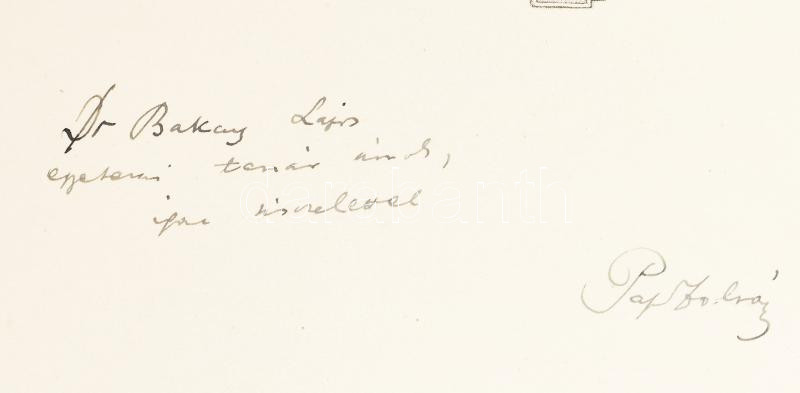 Dr Bakay Lajos
egyetemi tanár úrnak,
igaz tisztelettel
Pap Zoltán
darabanth